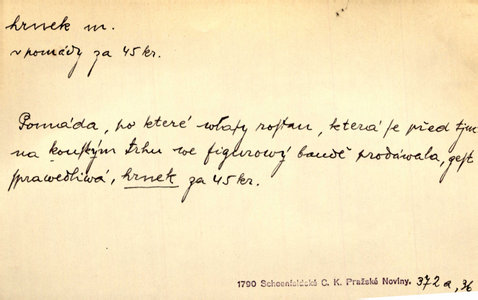 hrnek m.
v pomády za 45 kr.
Pomáda, po které wlasy rostau, která se před tjm
na koňském trhu we figurowý baudě prodáwala, gest
sprawedliwá, hrnek za 45 kr.
1790 Schoenfeldské C. K. Pražské Noviny. 372 a, 36